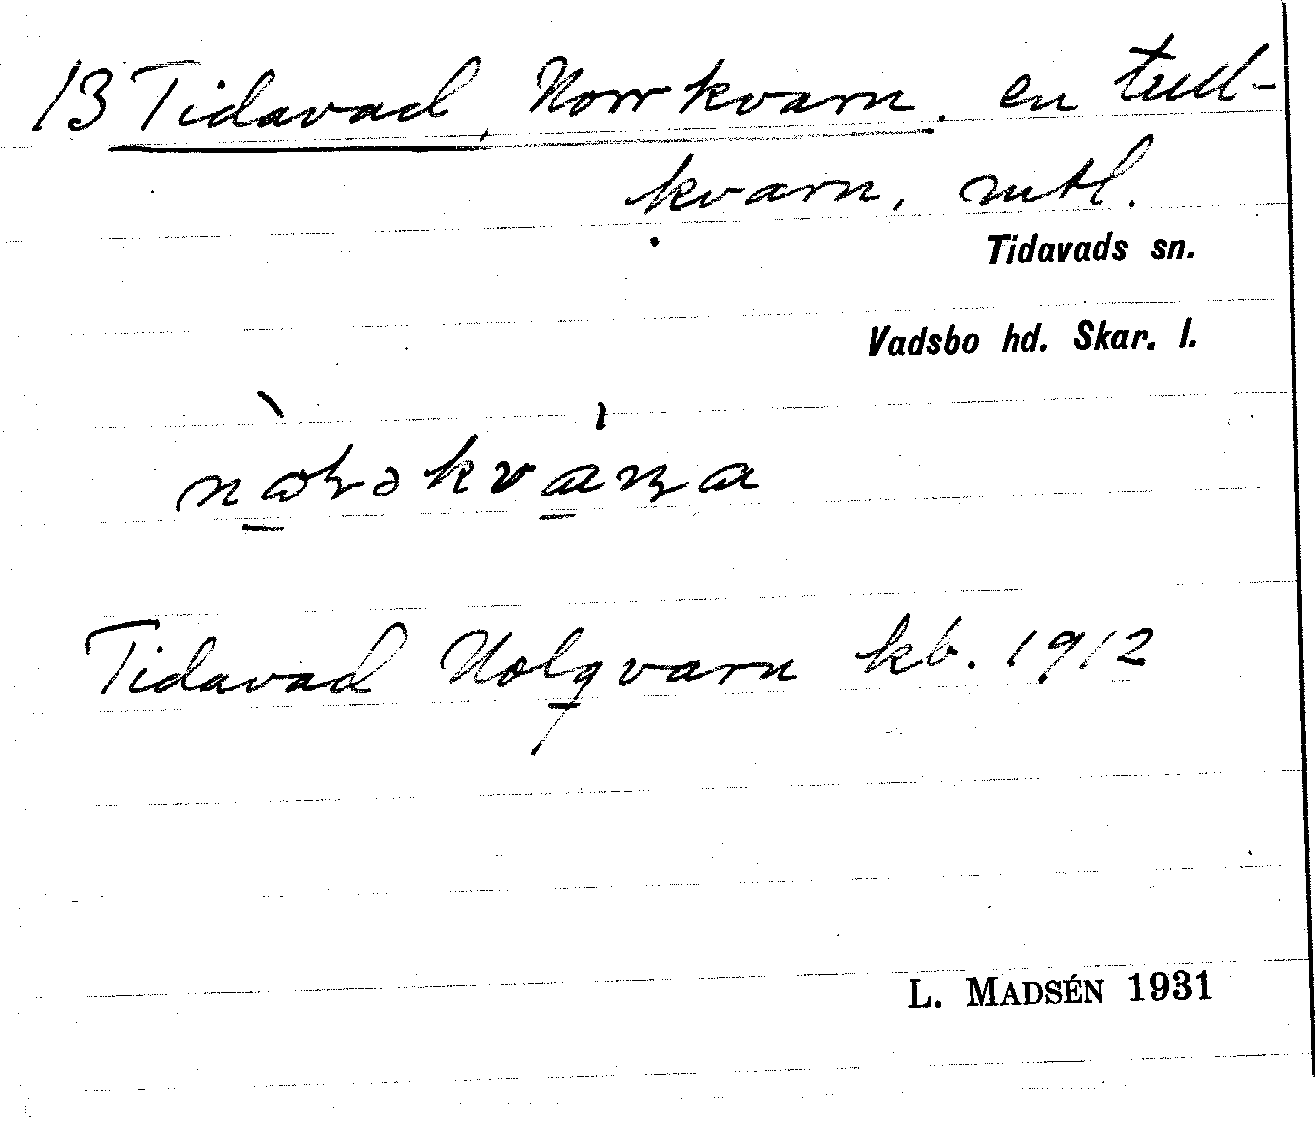 13 Tidavad, Norrkvarn. en tull-
kvarn, mtl.
Tidavads sn.
Vadsbo hd. Skar. l.
Tidavad Nolqvarn kb. 1912
L. MADSÉN 1931